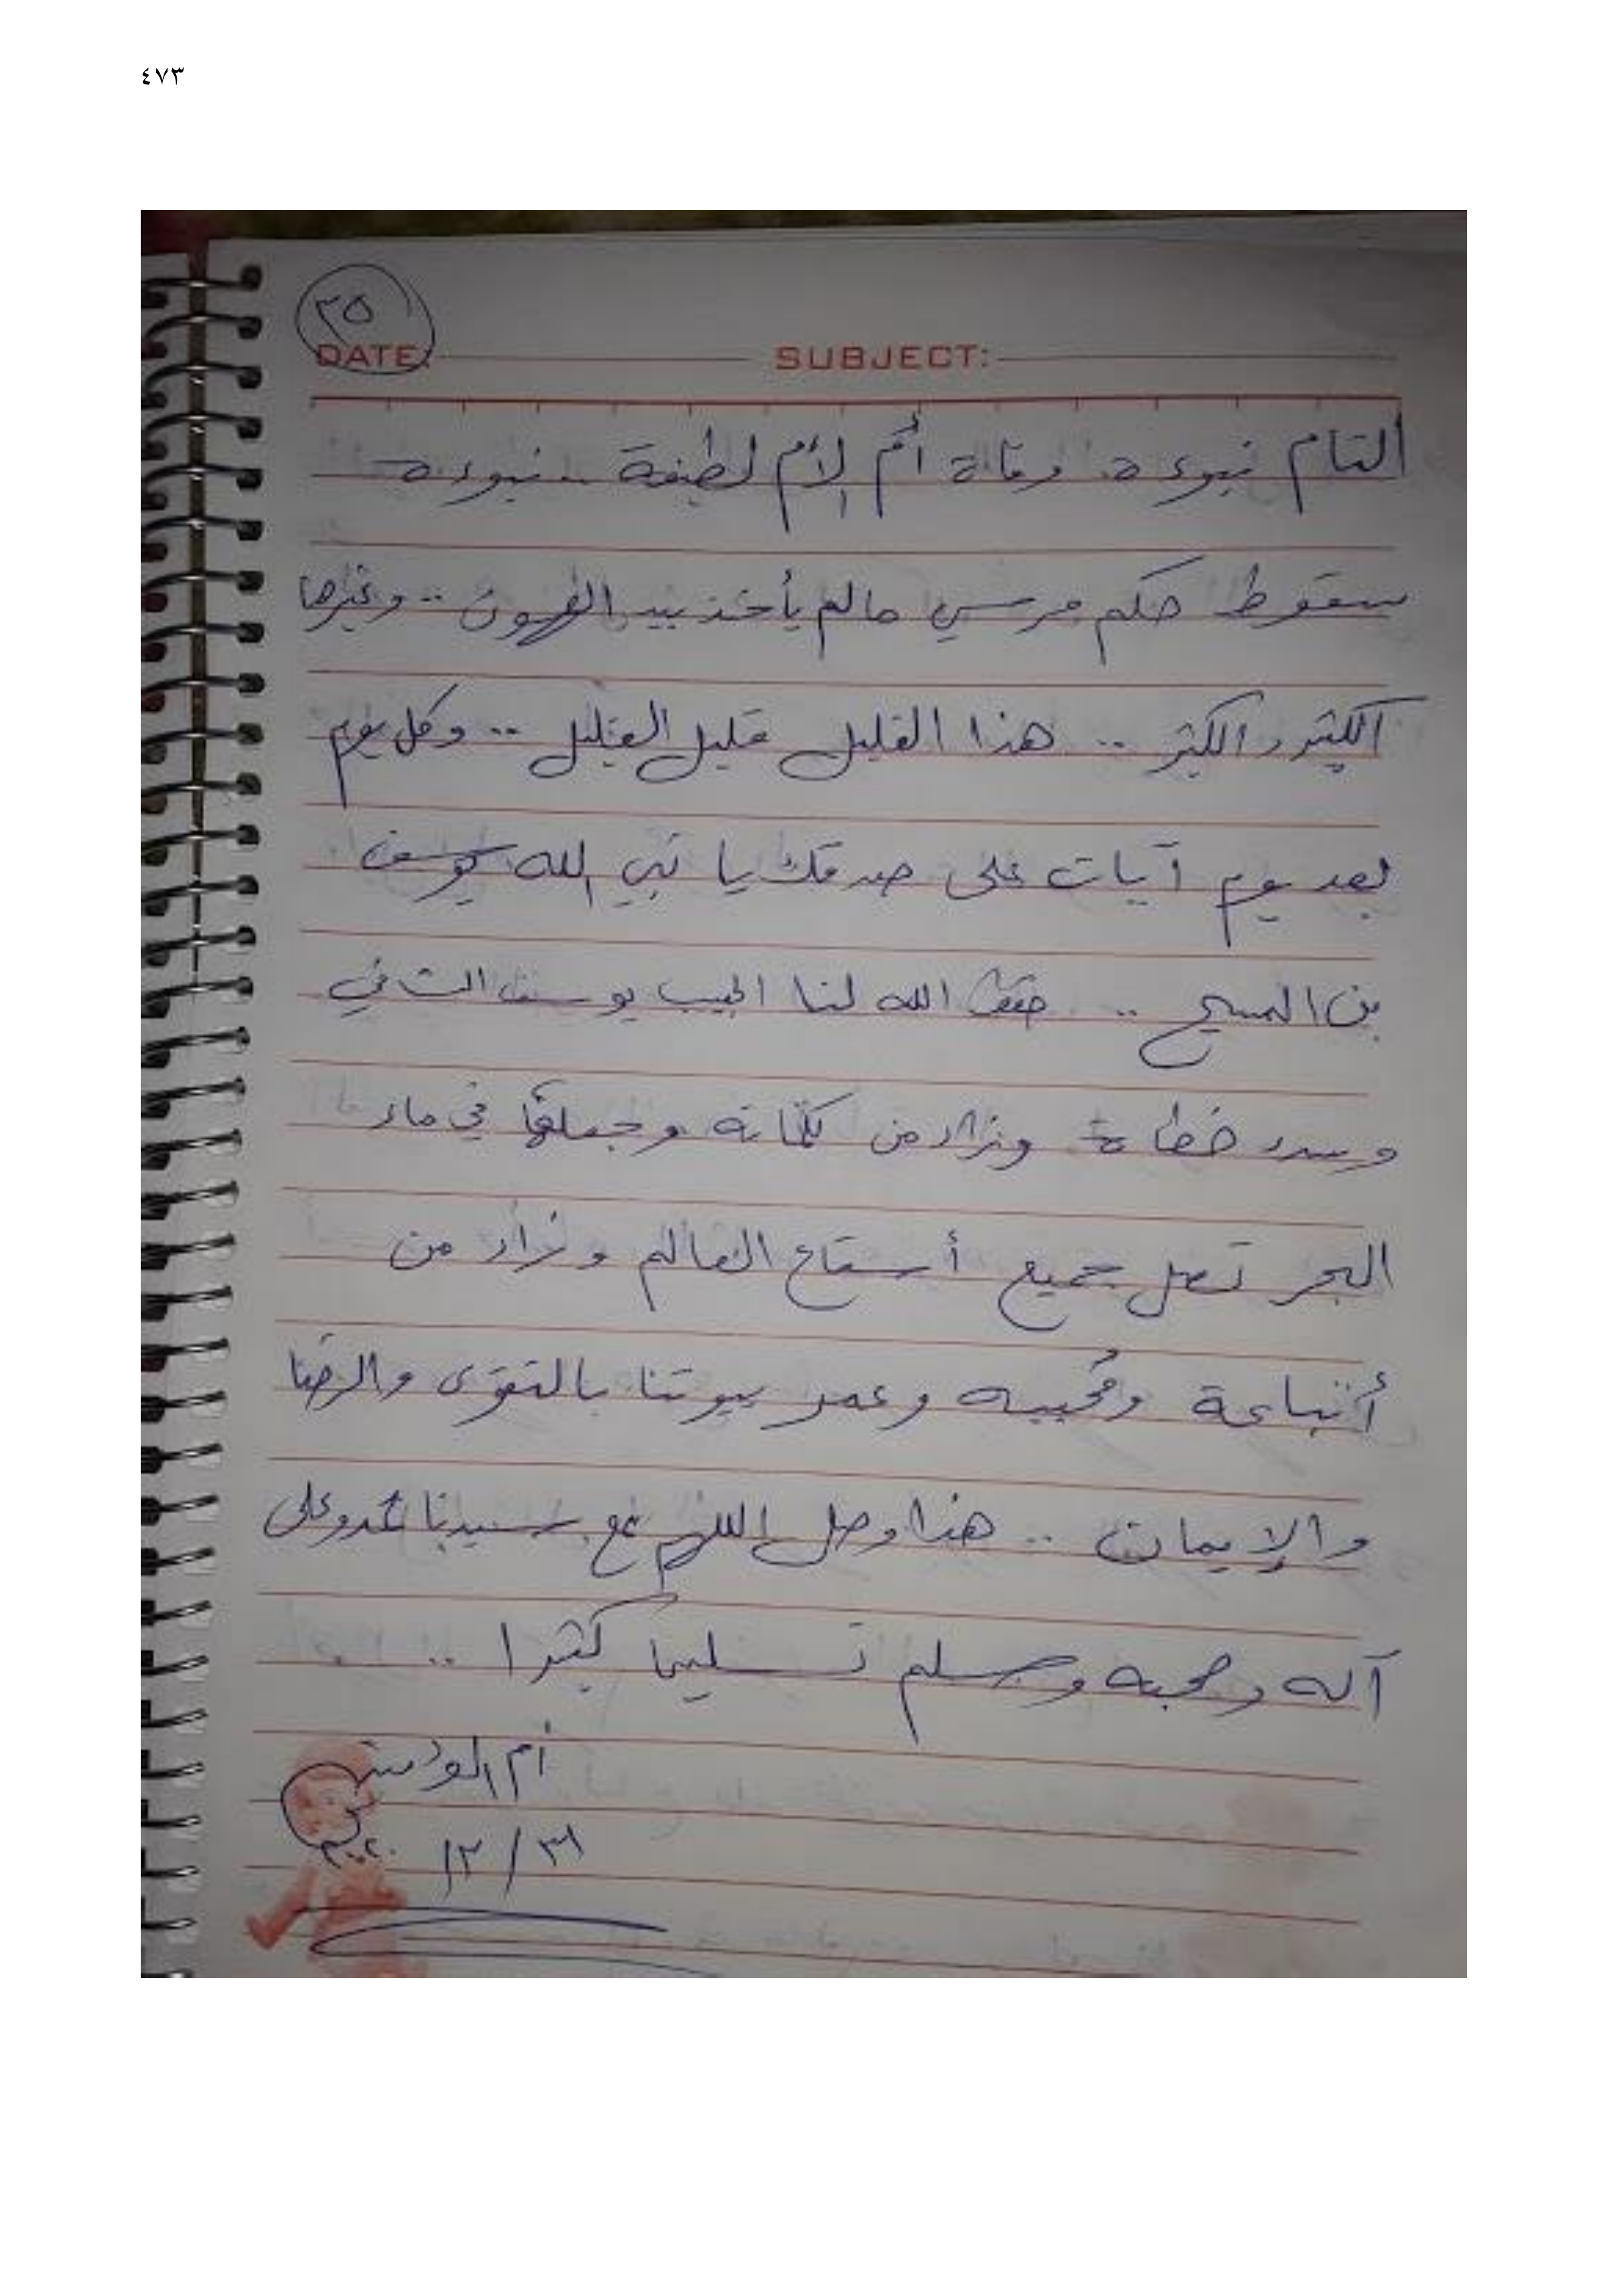 ٤٧٣
٣٥
DATE:
SUBJECT:
التام نبوءة وفاة أم الأم لطيفة .. نبوءة
سقوط حكم مرسي مالم يأخذ بيد .. وغيرها
الكثير والكثير .. هذا القليل قليل القليل .. وكل يوم
بعد يوم آيات على صدقك يا نبي الله يوسف
بن المسيح .. حفظ الله لنا الحبيب يوسف الثاني
وسدد خطاه وزاد من كلماته وجعلها في ماء
البحر تصل جميع العالم وزاد من
أتباعة ومُحبيه وعمر بيوتنا بالتقوى والرضا
والإيمان .. هذا وصل اللهم على سيدنا محمد وعلى
آله وصحبه وسلم تسليما كثيرا ..
أم المؤمنين
٣١ / ١٢